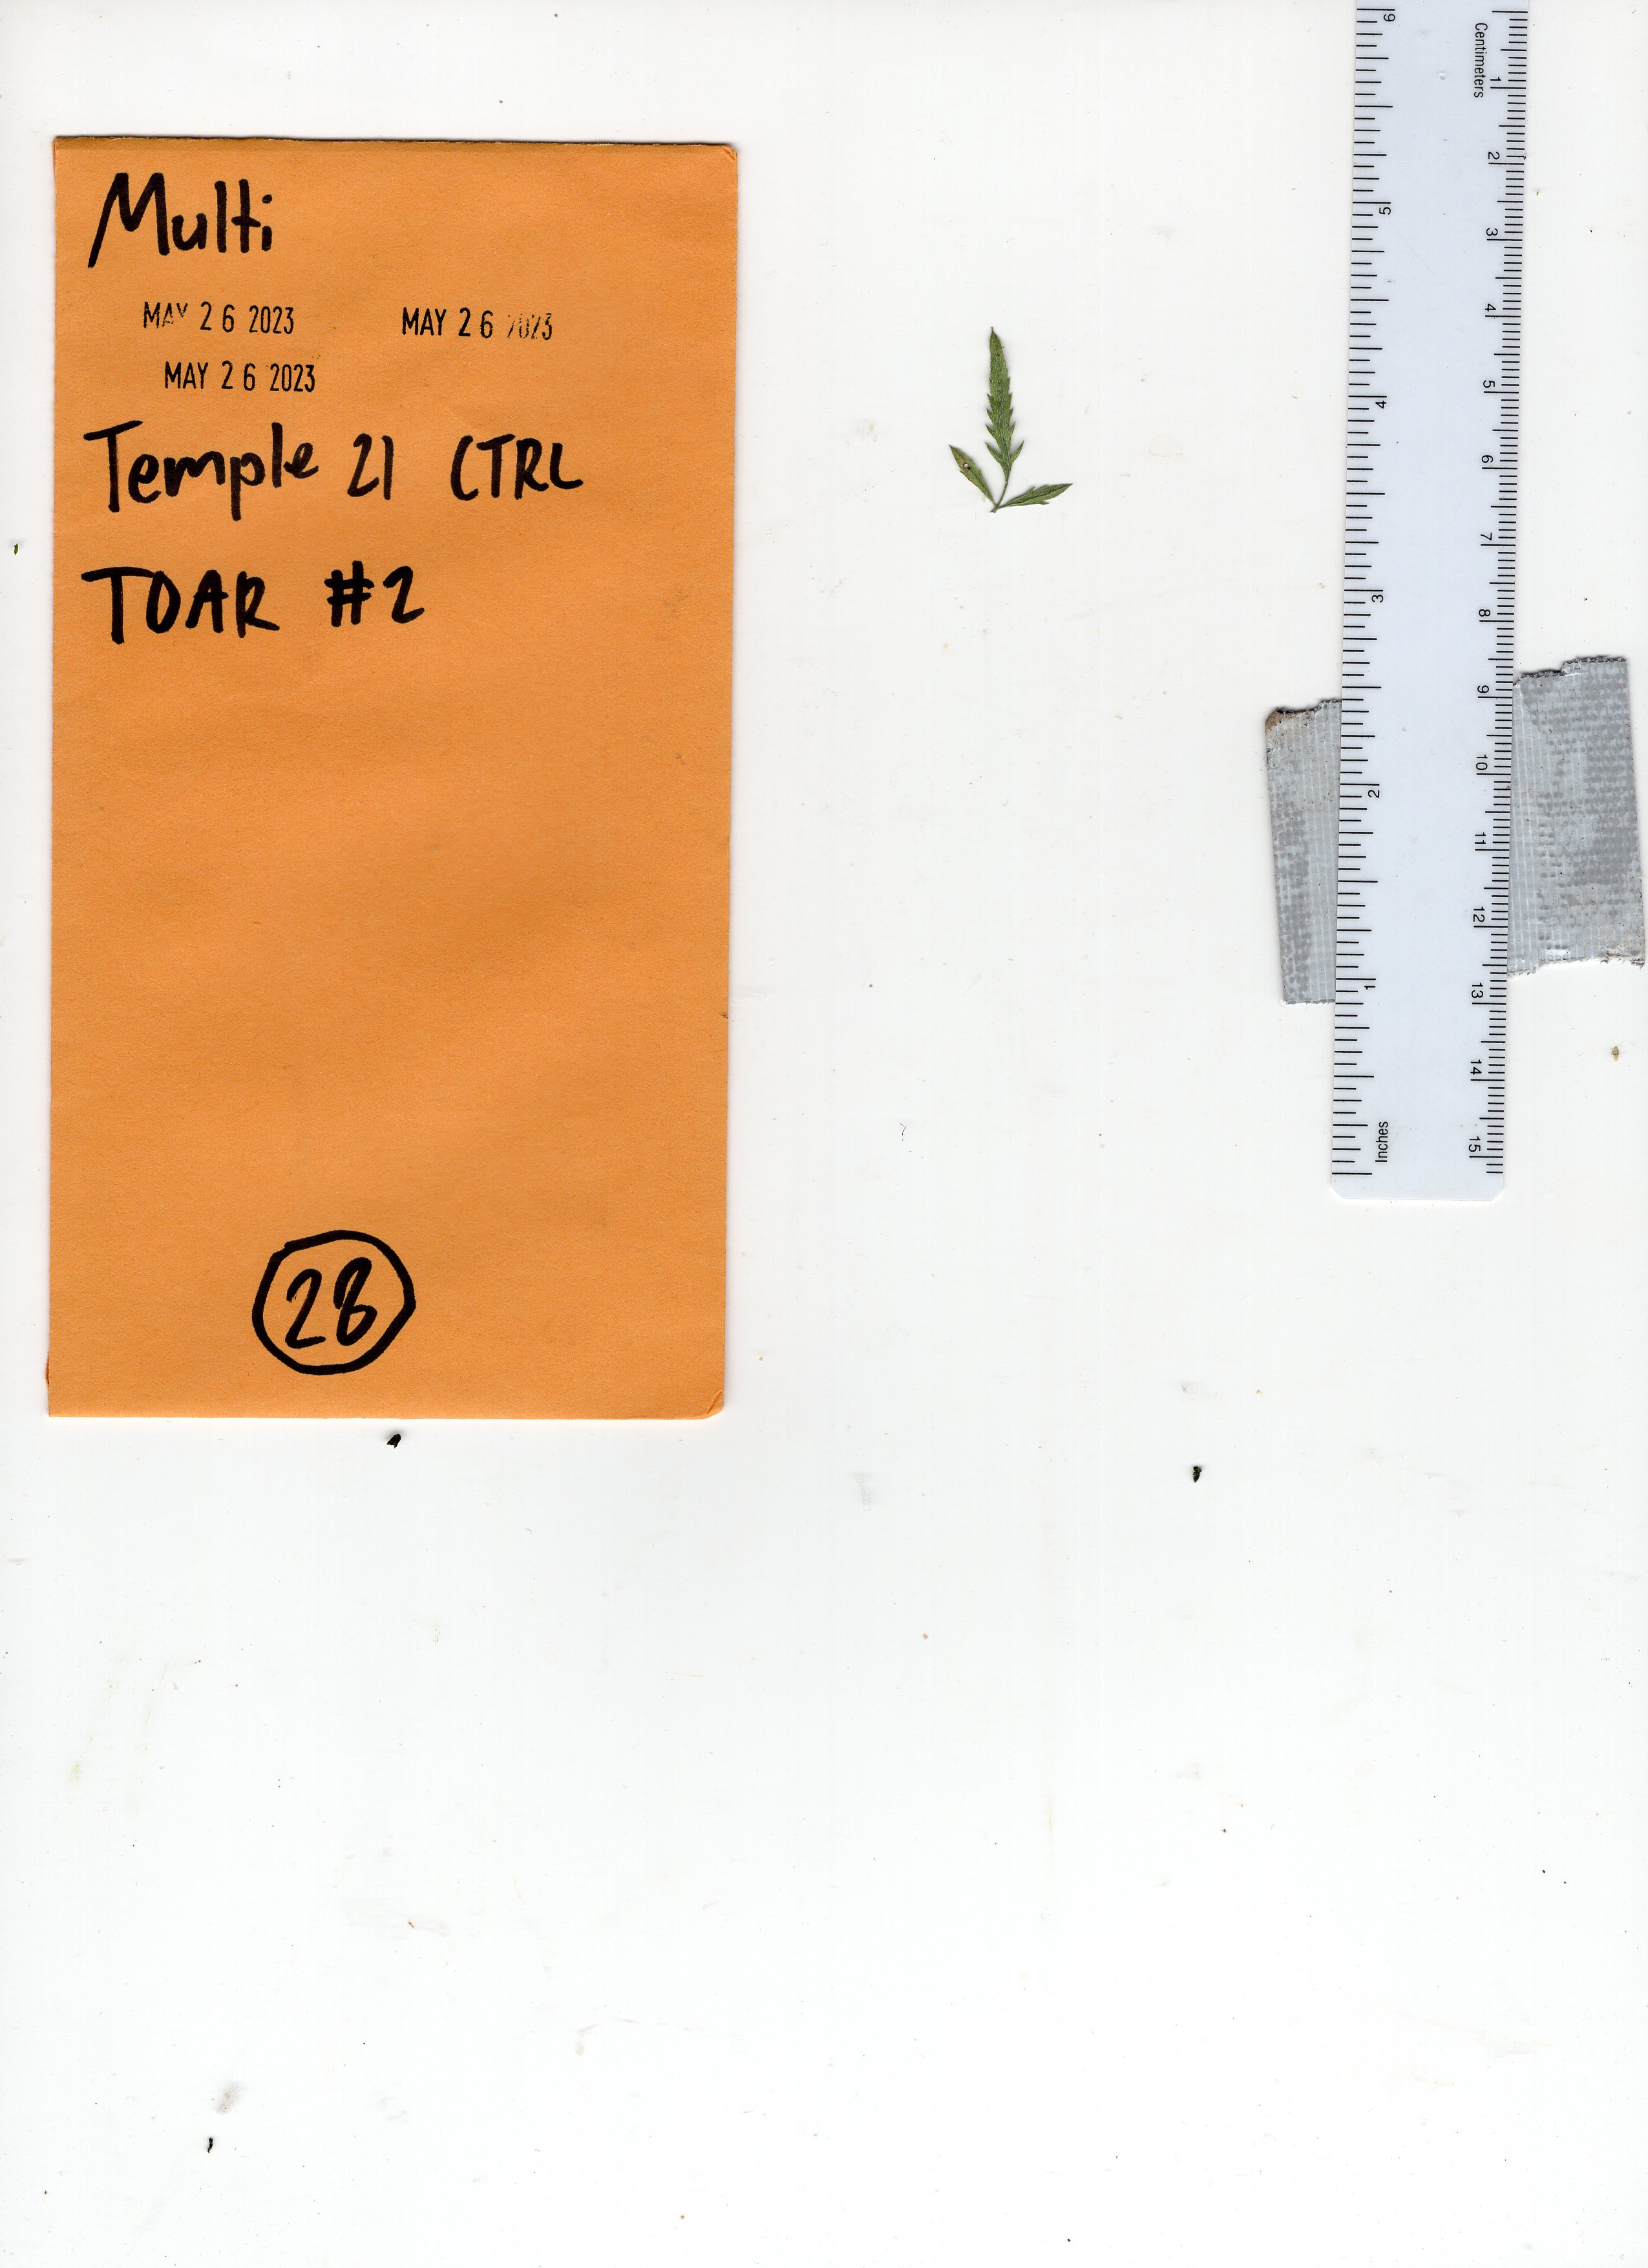 Multi
MAY 26 2023 MAY 26 2023
MAY 26 2023
Temple 21 CTRL
TOAR #2
28
Centimeters
1 2 3 4 5 6 7 8 9 10 11 12 13 14 15
6 5 4 3 2 1
Inches